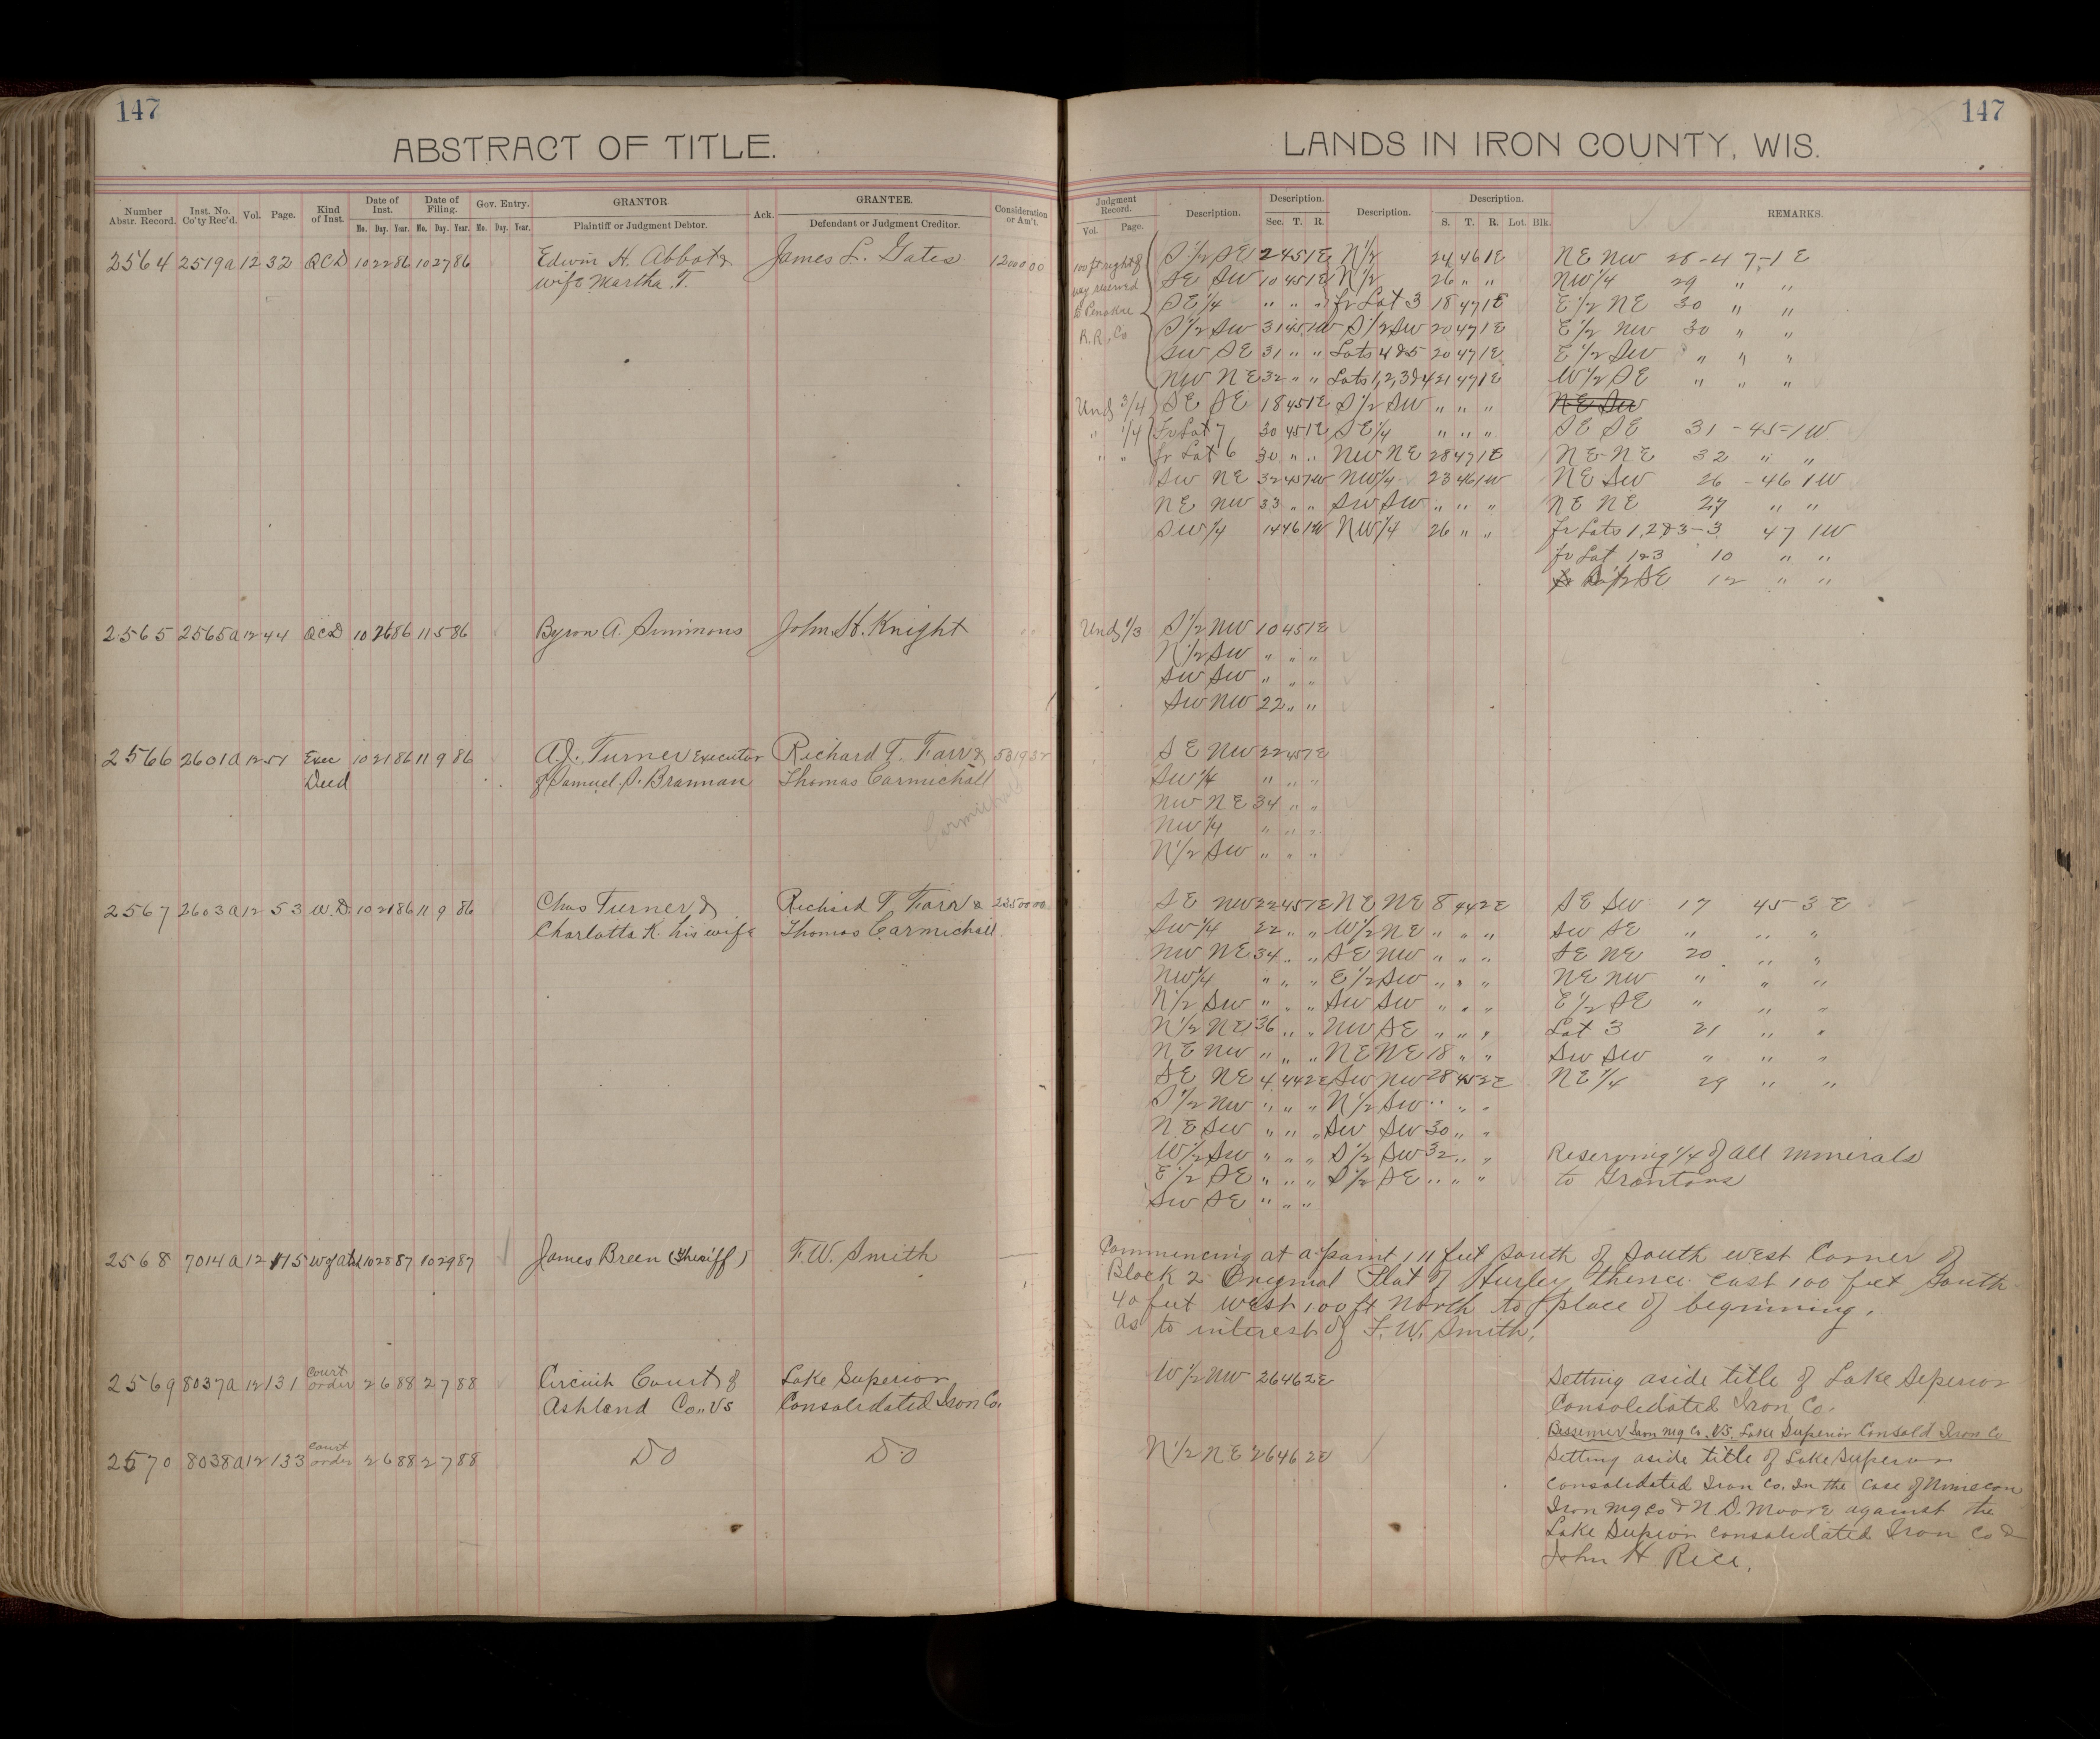 147
147
ABSTRACT OF TITLE.
LANDS IN IRON COUNTY, WIS.
Number Abstr. Record. Inst. No. Co'ty Rec'd. Vol. Page. Kind of Inst. Date of Inst. Date of Filing. Gov. Entry. GRANTOR Ack. GRANTEE. Consideration or Am't.
Mo. Day. Year. Mo. Day. Year. Mo. Day. Year. Plaintiff or Judgment Debtor. Defendant or Judgment Creditor.
Judgment Record. Description. Description. Description. Description. REMARKS.
Vol. Page. Sec. T. R. S. T. R. Lot. Blk.
2564 2519a 12 32 QCD 10 22 86 10 27 86 Edwin H. Abbot & James L. Gates 12000 00
wife Martha T.
100 ft right of
way reserved
to Penokee
R.R. Co
S 1/2 SE 2 45 1E N 1/2 24 46 1E NE NW 28-47-1 E
SE SW 10 45 1E N 1/2 26 " " NW 1/4 29 " "
SE 1/4 " " " fr Lot 3 18 47 1E E 1/2 NE 30 " "
S 1/2 SW 31 45 1W S 1/2 SW 20 47 1E E 1/2 NW 30 " "
SW SE 31 " " Lots 4 & 5 20 47 1E E 1/2 SW " " "
NW NE 32 " " Lots 1, 2, 3 & 4 21 47 1E W 1/2 SE " " "
Und 3/4 SE SE 18 45 1E S 1/2 SW " " " NE SW
" 1/4 Fr Lot 7 30 45 1E SE 1/4 " " " SE SE 31-45-1W
" " fr Lot 6 30 " " NW NE 28 47 1E NE NE 32 " "
SW NE 32 45 1W NW 1/4 23 46 1W NE SW 26-46 1W
NE NW 33 " " SW SW " " " NE NE 27 " "
SW 1/4 14 46 1W NW 1/4 26 " " fr Lots 1, 2 & 3-3 47 1W
fr Lot 1 & 3 10 " "
S 1/2 SE 12 " "
2565 2565a 12 44 QCD 10 26 86 11 5 86 Byron A. Simmons John H. Knight Und 1/3 S 1/2 NW 10 45 1E
N 1/2 SW " " "
SW SW " " "
SW NW 22 " "
2566 2601a 12 51 Exec 10 21 86 11 9 86 A.J. Turner Executor Richard T. Farr & SE NW 22 45 1E
Deed of Samuel S. Brannan Thomas Carmichall SW 1/4 " " "
NW NE 34 " "
NW 1/4 " " "
N 1/2 SW " " "
2567 2603a 12 53 W.D. 10 21 86 11 9 86 Chas Turner & Richard T. Farr & SE NW 22 45 1E NE NE 8 44 2E SE SW 17 45 3 E
Charlotta K. his wife Thomas Carmichall SW 1/4 22 " " W 1/2 NE " " " SW SE " " "
NW NE 34 " " SE NW " " " SE NE 20 " "
NW 1/4 " " " E 1/2 SW " " " NE NW " " "
N 1/2 SW " " " SW SW " " " E 1/2 SE " " "
N 1/2 NE 36 " " NW SE " " " Lot 3 21 " "
NE NW " " " NE NE 18 " " SW SW " " "
SE NE 4 44 2E SW NW 28 45 2E NE 1/4 29 " "
S 1/2 NW " " " N 1/2 SW " " "
NE SW " " " SW SW 30 " "
W 1/2 SW " " " S 1/2 SW 32 " " Reserving 1/4 of all minerals
E 1/2 SE " " " S 1/2 SE " " " to Grantors
SW SE " " "
2568 7014a 12 115 W of Att 10 28 87 10 29 87 James Breen (Sheriff) F.W. Smith
Commencing at a point 111 feet South of South west Corner of
Block 2 Original Plat of Hurley thence East 100 feet South
40 feet west 100 ft North to place of beginning.
as to interest of F. W. Smith.
2569 8037a 12 131 Court order 2 6 88 2 7 88 Circuit Court of Lake Superior W 1/2 NW 26 46 2E Setting aside title of Lake Seperior
Ashland Co. vs Consolidated Iron Co. Consolidated Iron Co.
Bessemer Iron Mg Co. VS. Lake Superior Consold Iron Co
2570 8038a 12 133 Court order 2 6 88 2 7 88 Do Do N 1/2 NE 26 46 2E Setting aside title of Lake Superior
Consolidated Iron Co. In the Case of Nimecon
Iron Mg Co & N. D. Moore against the
Lake Superior Consolidated Iron Co &
John H Rice.